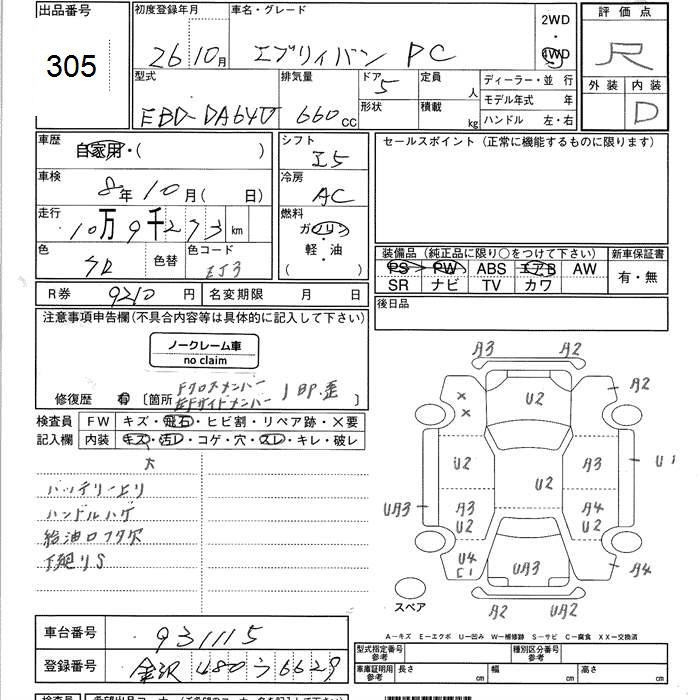 出品番号
305
初度登録年月
26 10月
車名・グレード
エブリイバン PC
2WD
・
4WD
評価点
R
外装 内装
D
型式
EBD-DA64V
排気量
660cc
ドア
5
形状
定員
人
積載
kg
ディーラー・並 行
モデル年式 年
ハンドル 左・右
車歴
自家用・( )
車検
8年10月( 日)
走行
10万9千273km
色
色替
色コード
ZJ3
シフト
I5
冷房
AC
燃料
ガソリン
軽・油
( )
セールスポイント(正常に機能するものに限ります)
装備品(純正品に限り○をつけて下さい)
PS PW ABS エアB AW
SR ナビ TV カワ
新車保証書
有・無
R券 9210円
名変期限 月 日
後日品
注意事項申告欄(不具合内容等は具体的に記入して下さい)
ノークレーム車
no claim
修復歴 有 [箇所
Fクロスメンバー
左Fサイドメンバー
IBP.歪
検査員
記入欄
FW キズ・飛石・ヒビ割・リペア跡・×要
内装 キズ・汚レ・コゲ・穴・スレ・キレ・破レ
大
バッテリー上リ
ハンドルハゲ
給油口フタ欠
下廻りS
A3 A2
A2
U2
U2 A3 U1
U2
UA3 A3 A4
U2 U2
U4
C1
UA3 A4
A2 UA2
スペア
A-キズ E-エクボ U-凹み W-補修跡 S-サビ C-腐食 XX-交換済
車台番号 931115
登録番号 金沢 480 う 6629
型式指定番号
参考
種別区分番号
参考
車庫証明用
参考
長さ cm 幅 cm 高さ cm